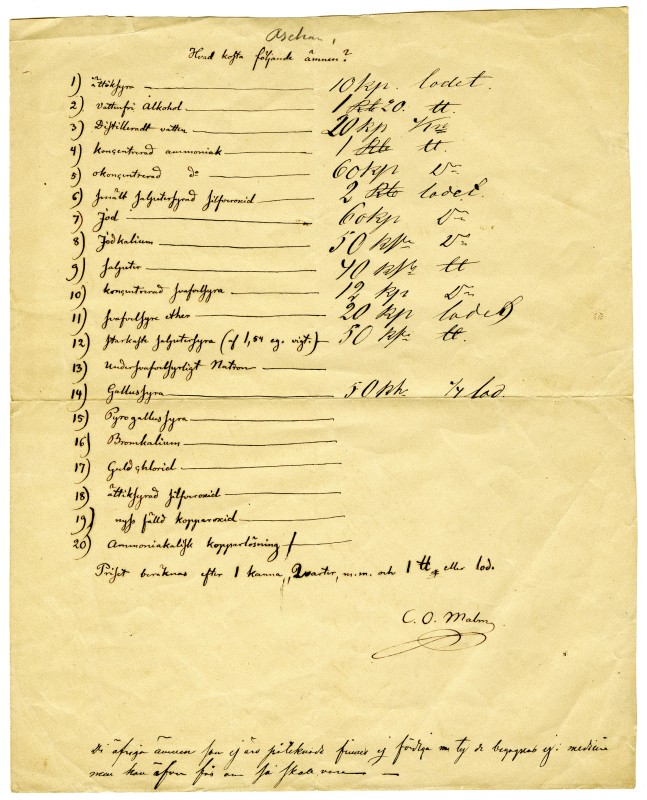 Aschan,
Hvad kosta följande ämnen?
1) ättiksyra 10 kp. lodet.
2) Vattenfri Alkohol 1 Rb 20. tt.
3) Distilleradt vatten 20 kp
4) koncentrerad ammoniak 1 Rb tt
5) okoncentrerad do 60 kp Do
6) smält salpetersyrad silfveroxid 2 Rb lodet.
7) Jod 60 kp Do
8) Jodkalium 50 kp Do
9) salpeter 40 kp tt
10) koncentrerad svafvelsyra 12 kp Do
11) svafvelsyre ether 20 kp lodet
12) starkaste salpetersyra (af 1,54 eg. vigt.) 50 kp tt.
13) Undersvafvelsyrligt Natron
14) Gallussyra 50 kp 1/4 lod.
15) Pyrogallussyra
16) Bromkalium
17) Guldchlorid
18) ättiksyrad silfveroxid
19) nyss fälld kopparoxid
20) Ammoniakalisk kopparlösning
Priset beräknas efter 1 kanna, Qvarter, m.m. och 1 tt eller lod.
C. O. Malm
De öfriga ämnen som ej äro påteknade finnes ej färdiga nu ty de begagnas ej i medicin
men kan äfven fås om så skall vara